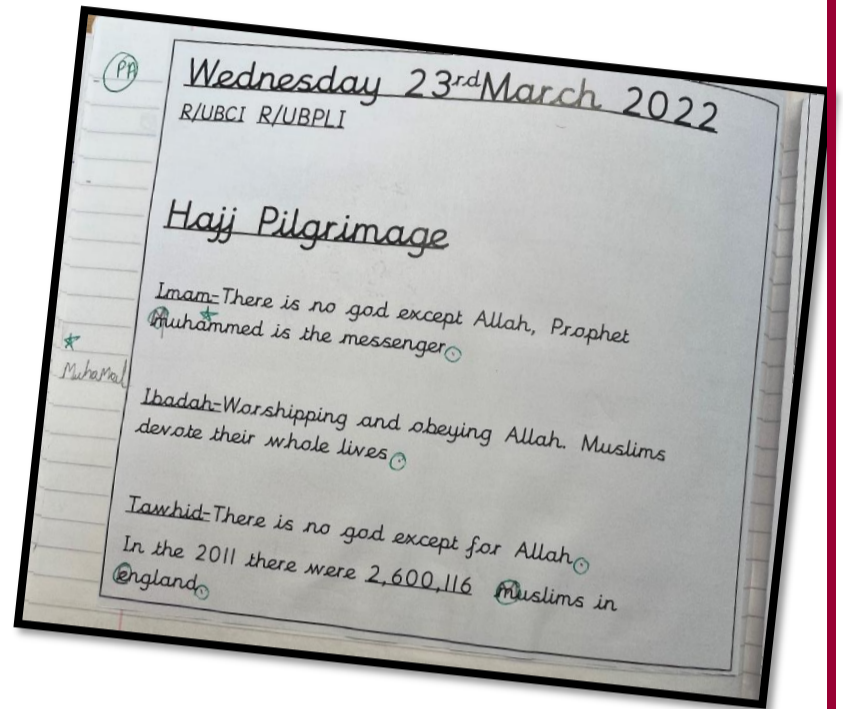 PP
Wednesday 23rd March 2022
R/UBCI R/UBPLI
Hajj Pilgrimage
Imam-There is no god except Allah, Prophet
muhammed is the messenger.
MuhaMed
Ibadah-Worshipping and obeying Allah. Muslims
devote their whole lives.
Tawhid-There is no god except for Allah.
In the 2011 there were 2,600,116 muslims in
england.